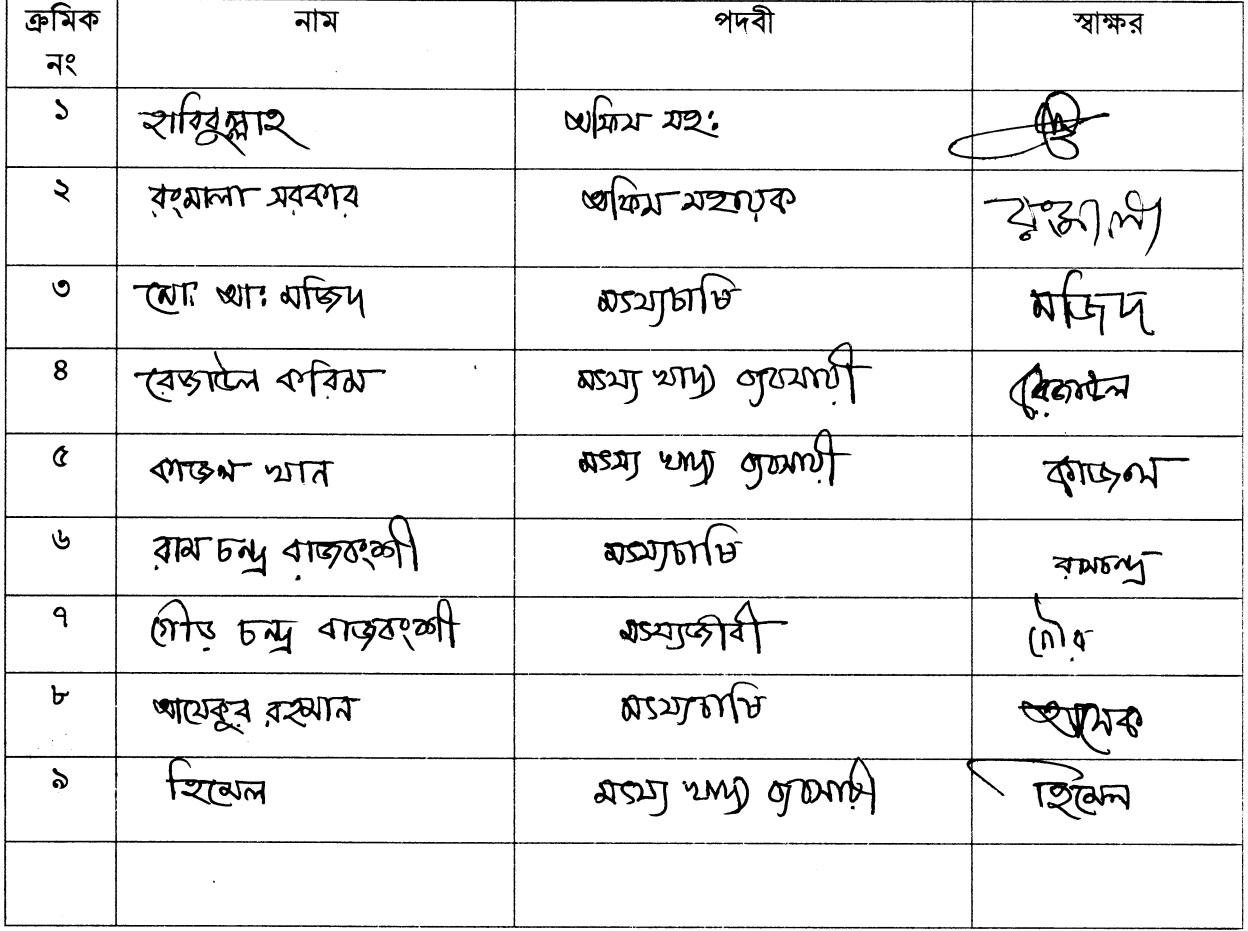 ক্রমিক নং নাম পদবী স্বাক্ষর
১ হাবিবুল্লাহ অফিস সহঃ
২ রংমালা সরকার অফিস সহায়ক রংমালা
৩ মোঃ আঃ মজিদ মৎস্যচাষি মজিদ
৪ রেজাউল করিম মৎস্য খাদ্য ব্যবসায়ী রেজাউল
৫ কাজল খান মৎস্য খাদ্য ব্যবসায়ী কাজল
৬ রাম চন্দ্র রাজবংশী মৎস্যচাষি রামচন্দ্র
৭ গৌড় চন্দ্র রাজবংশী মৎস্যজীবী গৌর
৮ আসেকুর রহমান মৎস্যচাষি আসেক
৯ হিমেল মৎস্য খাদ্য ব্যবসায়ী হিমেল